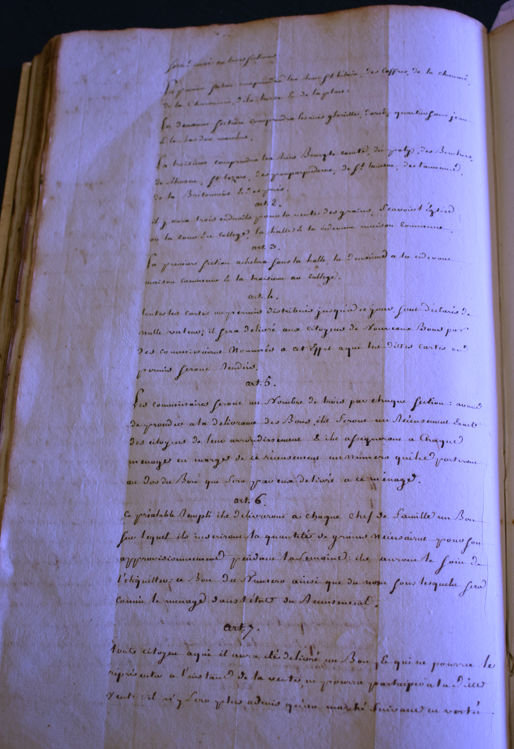 sera divisé en trois sections
La premiere section comprendra les rues St hilaire, des Coffres, de la
de la Chanoinie, de la & de la place.
La deuxieme section comprendra les rues
& le bas des moulins.
La troisieme comprendra les rues Bourg le comte, du puits, des
de St lazare, des de St laurent, des tanneurs,
de la & des prés.
art. 2.
il y aura trois endroits pour la vente des grains, Scavoir l'Eglise
ou la Cour du College, la halle & la cidevant maison Commune.
art. 3.
La premiere section achetera sous la halle la deuxieme a la cidevant
maison Commune & la troisieme au College.
art. 4.
toutes les cartes ou permis distribués jusqu'a ce jour sont declarés de
nulle valeur; il sera delivré aux citoyens de Nouveaux Bons par
des commissaires Nommés a cet Effet a qui les dittes cartes ou
permis seront Rendus.
art. 5.
Les commissaires seront au Nombre de trois par chaque section: avant
de proceder a la delivrance des Bons, ils feront un Recensement exact
des citoyens de leur arrondissement & ils assigneront a Chaque
menage en marge de ce recensement un Numero qu'ils porteront
au dos du Bon qui sera par eux delivré a ce menage.
art. 6.
Ce préalable Rempli ils delivreront a chaque Chef de famille un Bon
sur lequel ils inscriront la quantité de grains Necessaire pour son
approvisionnement pendant la Semaine; ils auront le soin de
l'étiquetter ce Bon du Numero ainsi que du nom sous lesquels sera
connu le menage dans l'état du Recensement.
art. 7.
toute citoyen a qui il aura été delivré un Bon, & qui ne pourra le
représenter a l'instant de la vente ne pourra participer a la ditte
vente; il n'y sera plus admis qu'au marché suivant en vertu